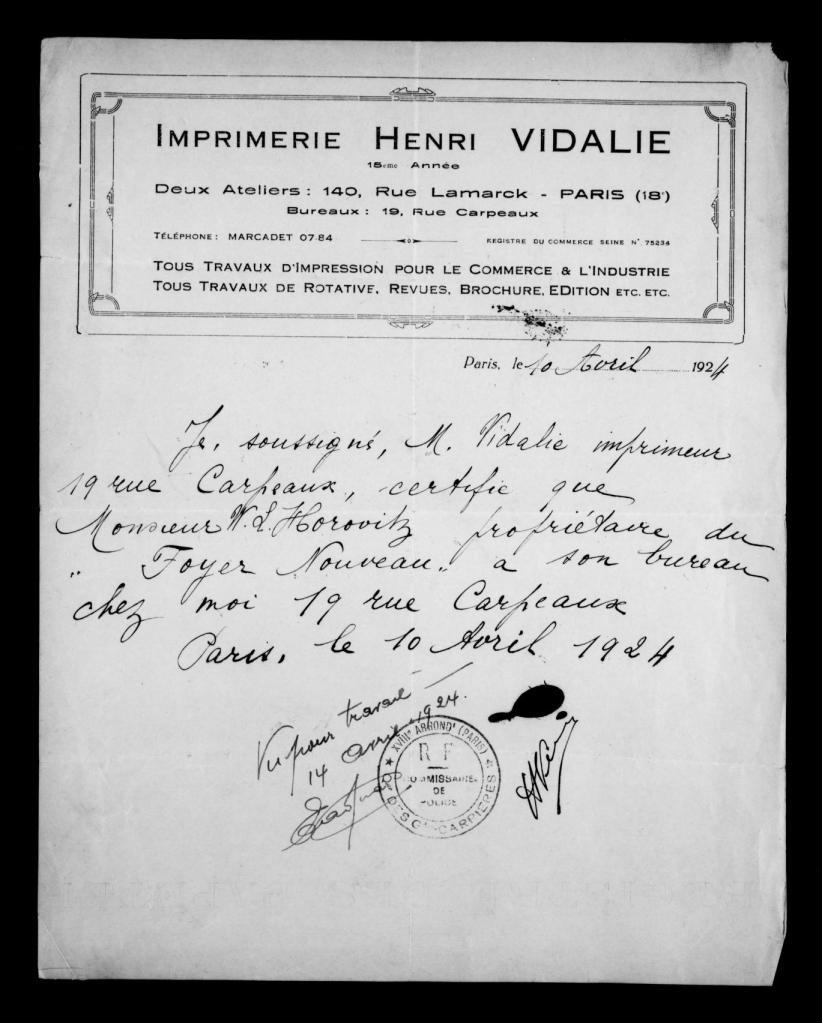 IMPRIMERIE HENRI VIDALIE
15eme Année
Deux Ateliers : 140, Rue Lamarck - PARIS (18e)
Bureaux : 19, Rue Carpeaux
TÉLÉPHONE : MARCADET 07-84
REGISTRE DU COMMERCE SEINE N° 75234
TOUS TRAVAUX D'IMPRESSION POUR LE COMMERCE & L'INDUSTRIE
TOUS TRAVAUX DE ROTATIVE, REVUES, BROCHURE, EDITION ETC. ETC.
Paris, le 10 Avril 1924
Je, soussigné, M. Vidalie imprimeur
19 rue Carpeaux, certifie que
Monsieur W. L. Horovitz propriétaire du
" Foyer Nouveau " a son bureau
chez moi 19 rue Carpeaux
Paris, le 10 Avril 1924
Vu pour travail
14 avril 1924.
XVIIIe ARRONDt (PARIS)
R F
COMMISSAIRE
DE
POLICE
DES Gdes CARRIÈRES